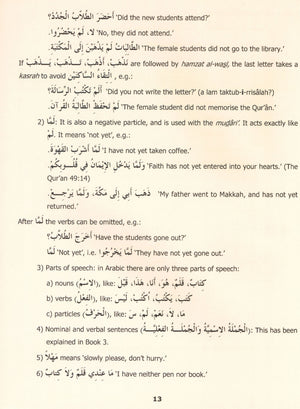 أَحَضَرَ الطُّلَّابُ الْجُدُدُ؟ 'Did the new students attend?'
لا، لَمْ يَحْضُرُوا. 'No, they did not attend.'
الطَّالِبَاتُ لَمْ يَذْهَبْنَ إِلَى الْمَكْتَبَةِ. 'The female students did not go to the library.'
If يَذْهَبْ، تَذْهَبْ، أَذْهَبْ، نَذْهَبْ are followed by hamzat al-waṣl, the last letter takes a
kasrah to avoid الْتِقَاءُ السَّاكِنَيْنِ, e.g.:
أَلَمْ تَكْتُبِ الرِّسَالَةَ؟ 'Did you not write the letter?' (a lam taktub-i-r-risālah?)
لَمْ تَحْفَظِ الطَّالِبَةُ الْقُرْآنَ. 'The female student did not memorise the Qur'ān.'
2) لَمَّا: It is also a negative particle, and is used with the muḍāri'. It acts exactly like
لَمْ. It means 'not yet', e.g.:
لَمَّا أَشْرَبِ الْقَهْوَةَ. 'I have not yet taken coffee.'
وَلَمَّا يَدْخُلِ الْإِيمَانُ فِي قُلُوبِكُمْ. 'Faith has not yet entered into your hearts.' (The
Qur'an 49:14)
ذَهَبَ أَبِي إِلَى مَكَّةَ، وَلَمَّا يَرْجِعْ. 'My father went to Makkah, and has not yet
returned.'
After لَمَّا the verbs can be omitted, e.g.:
أَخَرَجَ الطُّلَّابُ؟ 'Have the students gone out?'
لَمَّا 'Not yet', i.e. لَمَّا يَخْرُجُوا 'They have not yet gone out.'
3) Parts of speech: in Arabic there are only three parts of speech:
a) nouns (الِاسْمُ), like: كِتَابٌ، قَلَمٌ، هُوَ، أَنَا، هَذَا، قَبْلَ.
b) verbs (الْفِعْلُ), like: كَتَبَ، يَكْتُبُ، اُكْتُبْ، لَيْسَ.
c) particles (الْحَرْفُ), like: مَا، لَا، نَعَمْ، لَمْ، سَـ.
4) Nominal and verbal sentences (الْجُمْلَةُ الِاسْمِيَّةُ وَالْجُمْلَةُ الْفِعْلِيَّةُ): This has been
explained in Book 3.
5) مَهْلًا means 'slowly please, don't hurry.'
6) مَا عِنْدِي قَلَمٌ وَلَا كِتَابٌ 'I have neither pen nor book.'
13